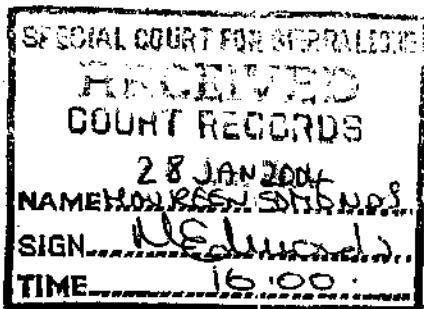 SPECIAL COURT FOR SIERRA LEONE
RECEIVED
COURT RECORDS
28 JAN 2004
NAME
SIGN
TIME 16:00.